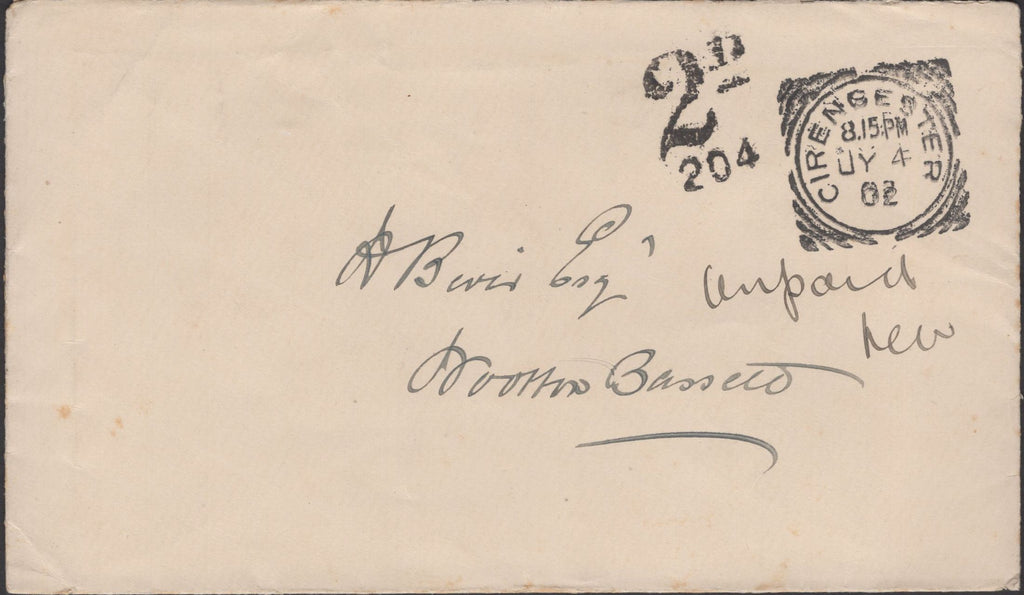 2D
204
CIRENCESTER
8.15 PM
JY 4
02
H Bevir Esq
Unpaid
Wootton Bassett